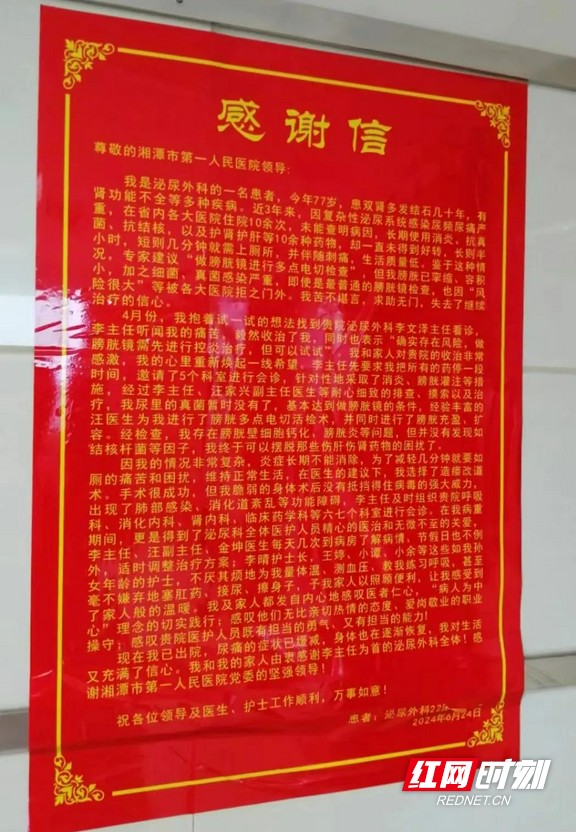 感谢信
尊敬的湘潭市第一人民医院领导：
我是泌尿外科的一名患者，今年77岁，患双肾多发结石几十年，有
肾功能不全等多种疾病，近3年来，因复杂性泌尿系统感染尿频尿痛严
重，在省内各大医院住院10余次，未能查明病因，长期使用消炎、抗真
菌、抗结核、以及护肾护肝等10余种药物，却一直未得到好转，长则半
小时，短则几分钟就需上厕所，并伴随刺痛，生活质量低。鉴于这种情
况，专家建议“做膀胱镜进行多点电切检查”，但我膀胱已挛缩、容积
小，加之细菌、真菌感染严重，即使是最普通的膀胱镜检查，也因“风
险很大”等被各大医院拒之门外。我苦不堪言，求助无门，失去了继续
治疗的信心。
4月份，我抱着试一试的想法找到贵院泌尿外科李文泽主任看诊，
李主任听闻我的痛苦，毅然收治了我，同时也表示“确实存在风险，做
膀胱镜需先进行控炎治疗，但可以试试”，我和家人对贵院的收治非常
感激，我的心里重新焕起一线希望。李主任先要求我把所有的药停一段
时间，邀请了5个科室进行会诊，针对性地采取了消炎、膀胱灌注等措
施，经过李主任、汪家兴副主任医生等耐心细致的排查、摸索以及治
疗，我尿里的真菌暂时没有了，基本达到做膀胱镜的条件，经验丰富的
汪医生为我进行了膀胱多点电切活检术，并同时进行了膀胱充盈、扩
容。经检查，我存在膀胱壁细胞钙化，膀胱炎等问题，但并没有发现如
结核杆菌等因子，我终于可以摆脱那些伤肝伤肾药物的困扰了。
因我的情况非常复杂，炎症长期不能消除，为了减轻几分钟就要如
厕的痛苦和困扰，维持正常生活，在医生的建议下，我选择了造瘘改道
术。手术很成功，但我脆弱的身体术后没有抵挡得住病毒的强大威力，
出现了肺部感染、消化道紊乱等功能障碍，李主任及时组织贵院呼吸
科、消化内科、肾内科、临床药学科等六七个科室进行会诊。在我病重
期间，更是得到了泌尿科全体医护人员精心的医治和无微不至的关爱，
李主任、汪副主任、金坤医生每天几次到病房了解病情，节假日也不例
外，适时调整治疗方案；李晴护士长、王婷、小谭、小余等这些如我孙
女年龄的护士，不厌其烦地为我量体温、测血压、教我练习呼吸，甚至
毫不嫌弃地塞肛药、接尿、擦身子，予我家人以照顾便利，让我感受到
了家人般的温暖。我及家人都发自内心地感叹医者仁心，“病人为中
心”理念的切实践行；感叹他们无比亲切热情的态度、爱岗敬业的职业
操守；感叹贵院医护人员既有担当的勇气、又有担当的能力！
现在我已出院，尿痛的症状已缓减，身体也在逐渐恢复，我对生活
又充满了信心。我和我的家人由衷感谢李主任为首的泌尿外科全体！感
谢湘潭市第一人民医院党委的坚强领导！
祝各位领导及医生、护士工作顺利，万事如意！
患者：泌尿外科22
2024年6月24日
红网时刻
REDNET.CN